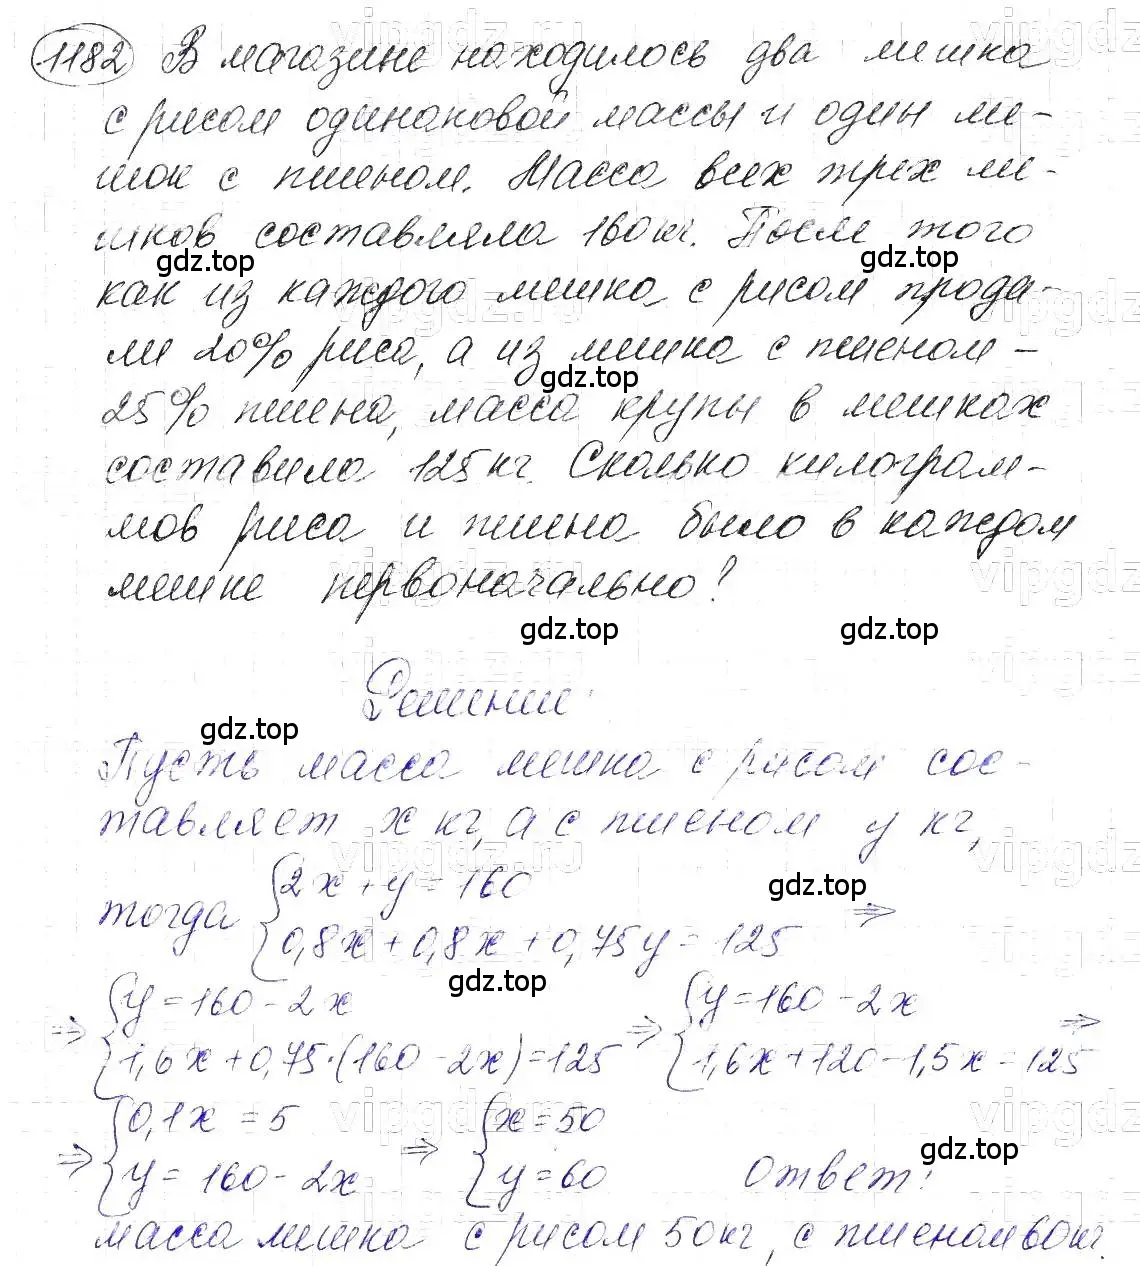 1182 В магазине находилось два мешка
с рисом одинаковой массы и один ме-
шок с пшеном. Масса всех трех ме-
шков составляла 160 кг. После того
gdz.top gdz.top
как из каждого мешка с рисом прода-
ли 20% риса, а из мешка с пшеном -
gdz.top
25% пшена, масса крупы в мешках
составила 125 кг. Сколько килограм-
мов риса и пшена было в каждом
мешке первоначально?
gdz.top gdz.top
Решение:
gdz.top
Пусть масса мешка с рисом сос-
тавляет x кг, а с пшеном y кг,
тогда {2x + y = 160
gdz.top
0,8x + 0,8x + 0,75y = 125 ⇒
gdz.top
⇒ {y = 160 - 2x
1,6x + 0,75·(160 - 2x) = 125 ⇒ {y = 160 - 2x
1,6x + 120 - 1,5x = 125 ⇒
⇒ {0,1x = 5
y = 160 - 2x ⇒ {x = 50
y = 60 Ответ:
gdz.top
масса мешка с рисом 50 кг, с пшеном 60 кг.
vipgdz.ru